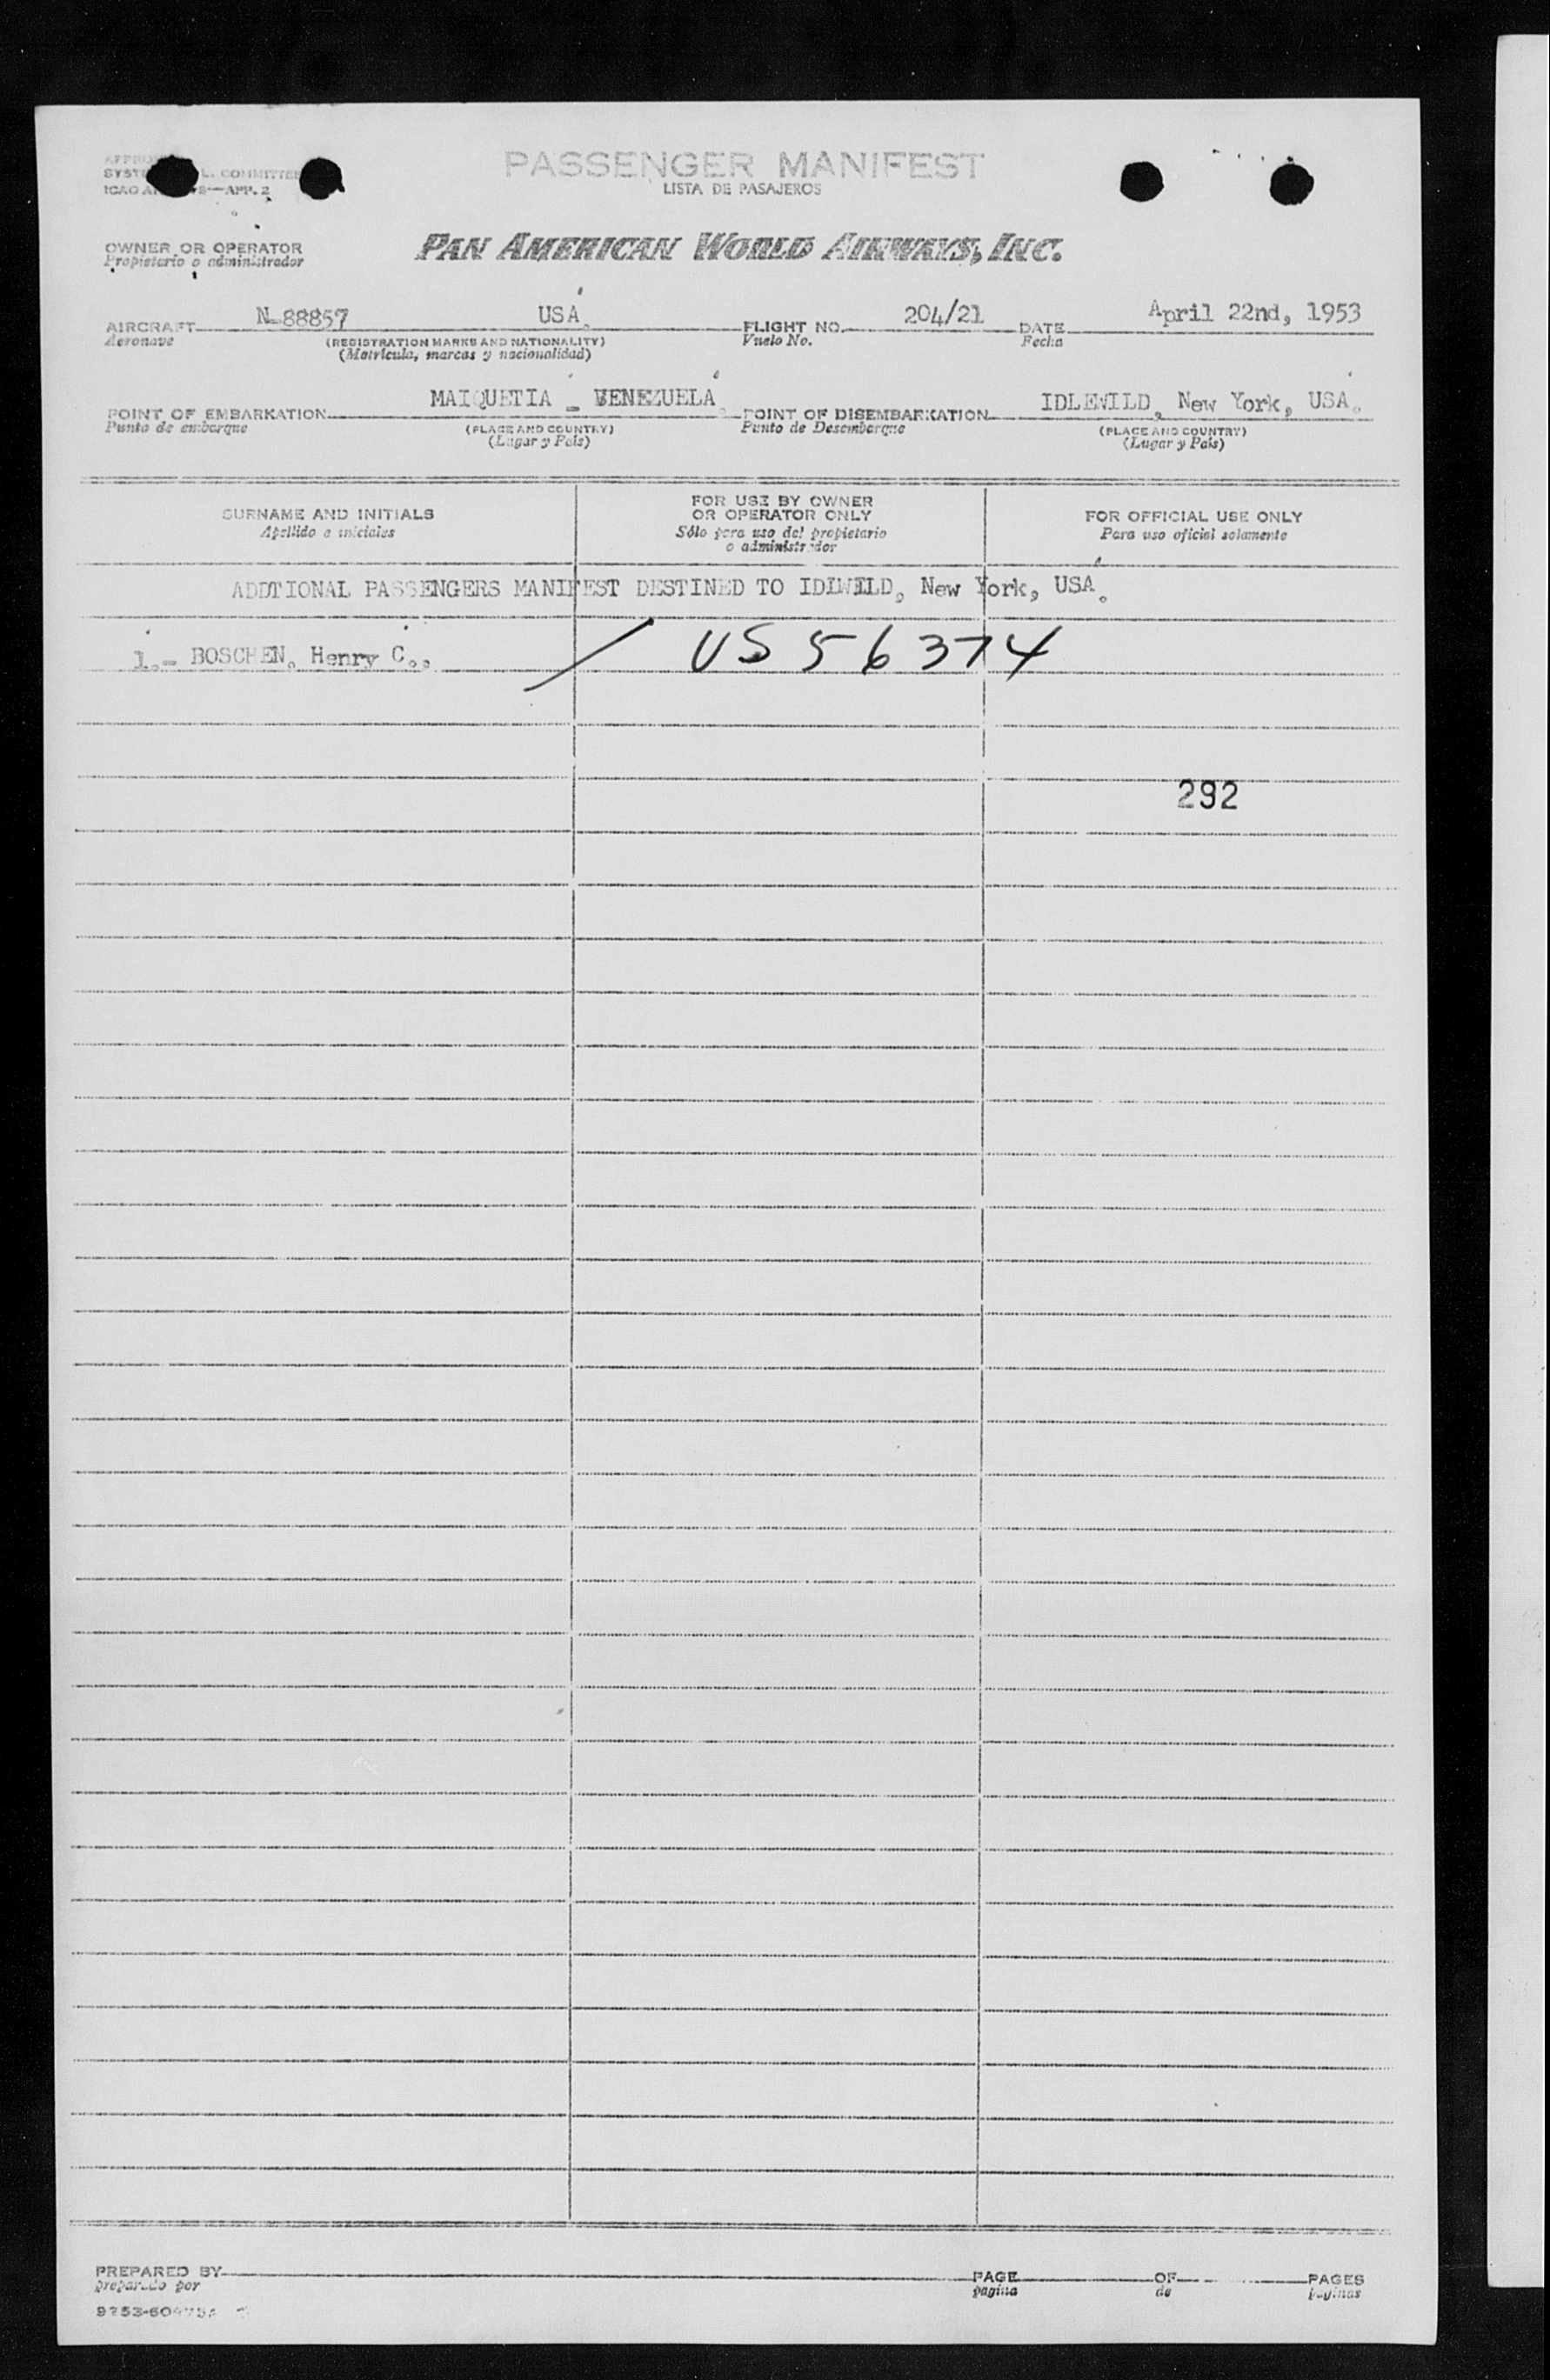 PASSENGER MANIFEST
LISTA DE PASAJEROS
L. COMMITTEE
APP. 2
OWNER OR OPERATOR
Propietario o administrador
PAN AMERICAN WORLD AIRWAYS, INC.
AIRCRAFT N-88857 USA. FLIGHT NO. 204/21 DATE April 22nd, 1953
Aeronave (REGISTRATION MARKS AND NATIONALITY) Vuelo No. Fecha
(Matrícula, marcas y nacionalidad)
POINT OF EMBARKATION MAIQUETIA - VENEZUELA. POINT OF DISEMBARKATION IDLEWILD, New York, USA.
Punto de embarque (PLACE AND COUNTRY) Punto de Desembarque (PLACE AND COUNTRY)
(Lugar y País) (Lugar y País)
SURNAME AND INITIALS
Apellido e iniciales
FOR USE BY OWNER
OR OPERATOR ONLY
Sólo para uso del propietario
o administrador
FOR OFFICIAL USE ONLY
Para uso oficial solamente
ADDTIONAL PASSENGERS MANIFEST DESTINED TO IDLWILD, New York, USA.
1.- BOSCHEN, Henry C., / US 56374
292
PREPARED BY PAGE OF PAGES
preparado por página de páginas